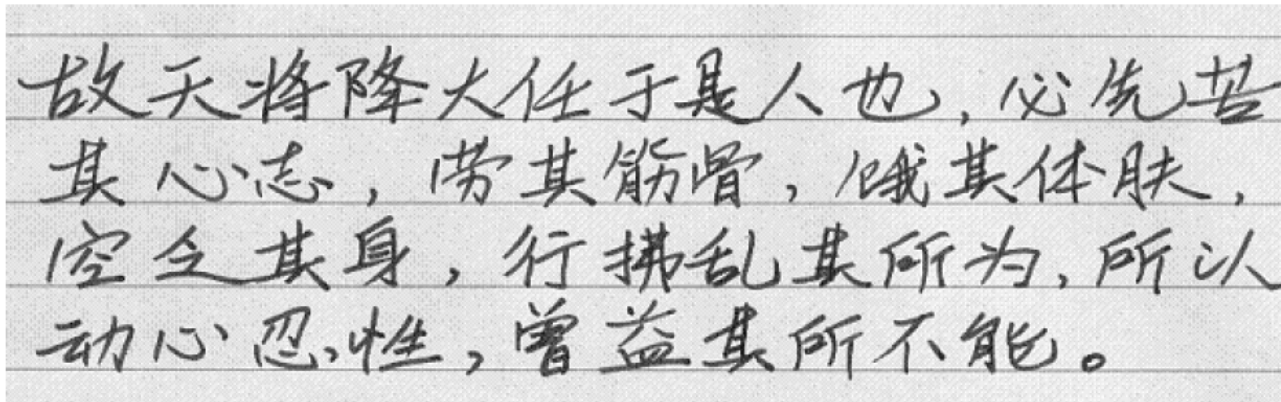 故天将降大任于是人也，必先苦
其心志，劳其筋骨，饿其体肤，
空乏其身，行拂乱其所为，所以
动心忍性，曾益其所不能。